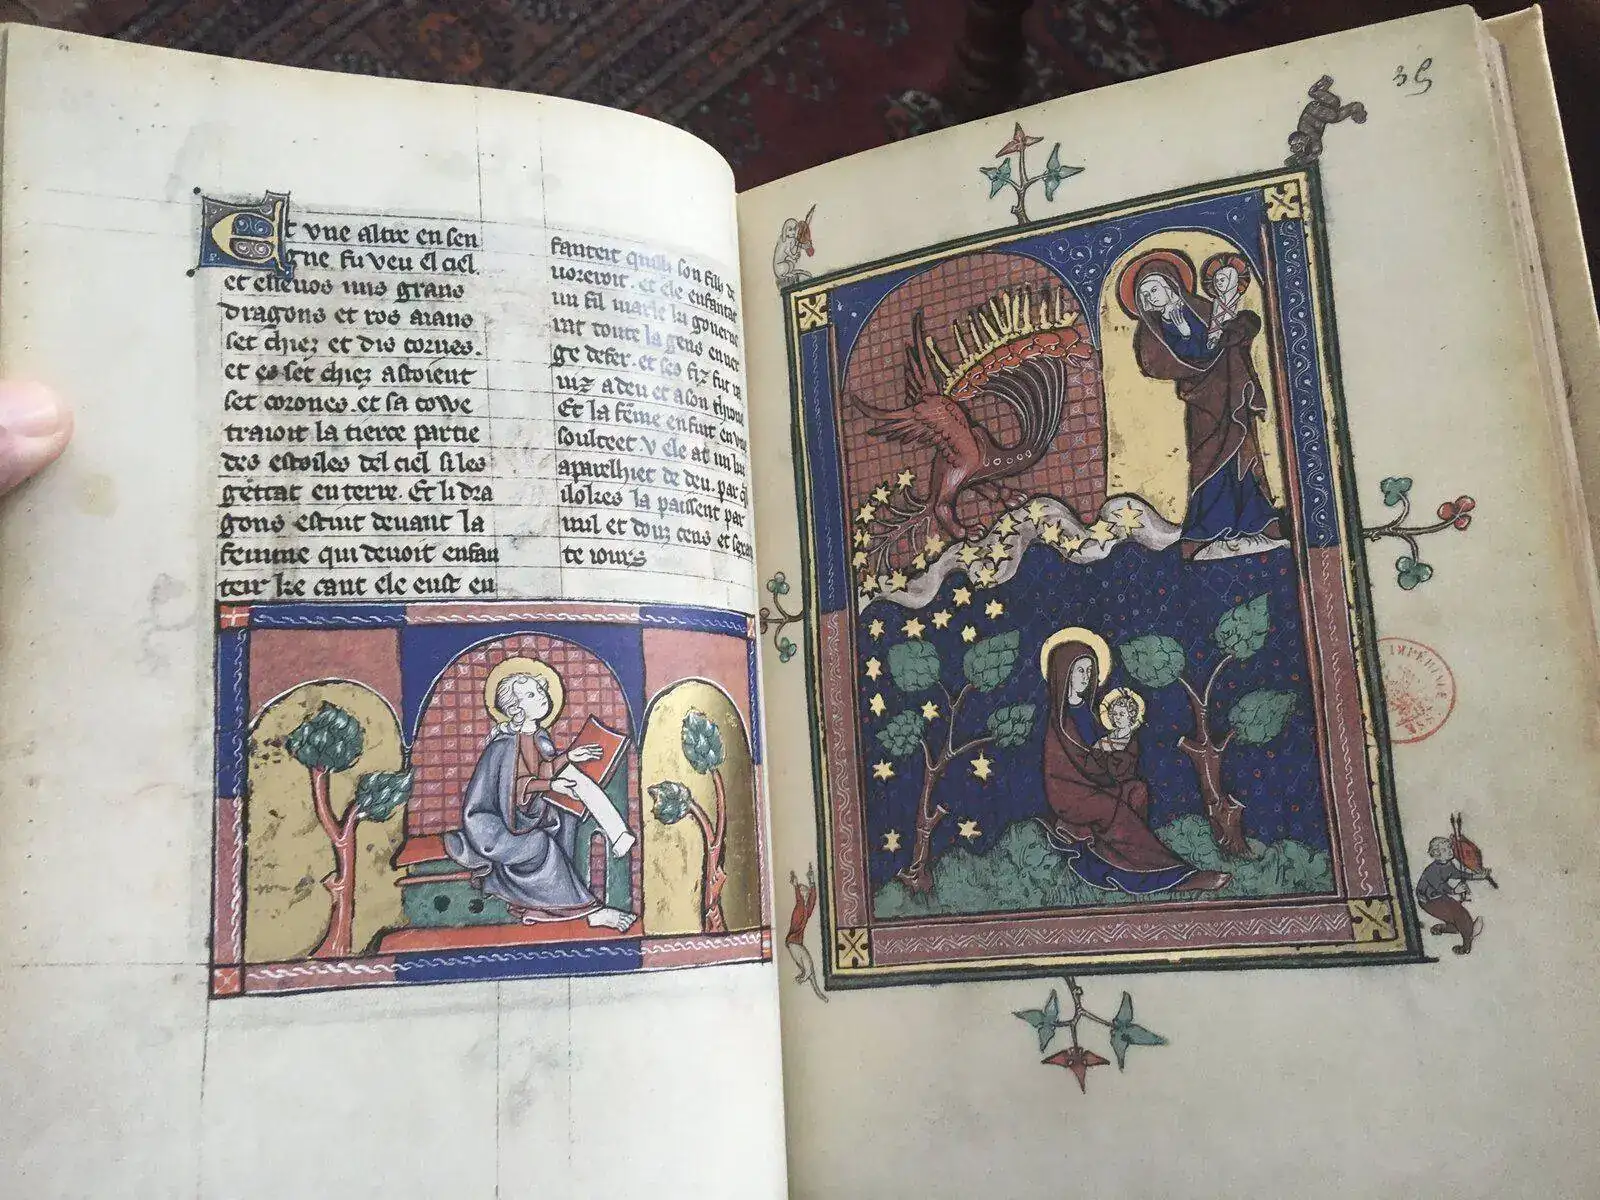 Et vne altre en sen
gne fu veu el ciel.
et ellevos uns grans
dragons et ros aians
set chiez et dis cornes.
et es set chiez astoient
set corones. et sa cowe
traioit la tierce partie
des estoiles del ciel si les
gettat en terre. Et li dra
gons estiut devant la
femme qui devoit enfan
teir ke cant ele eust en
fanteit son filh
et ele enfantat
un fil marle
int toute la gens en ver
ge defer. et ses fiz fut ra
viz a deu et a son throne
Et la feme enfuit en
v ele at un lu
aparelhiet de deu. par
ilokes la paissent par
mil et dous cens et sexan
te iours
35
IMPERIALE